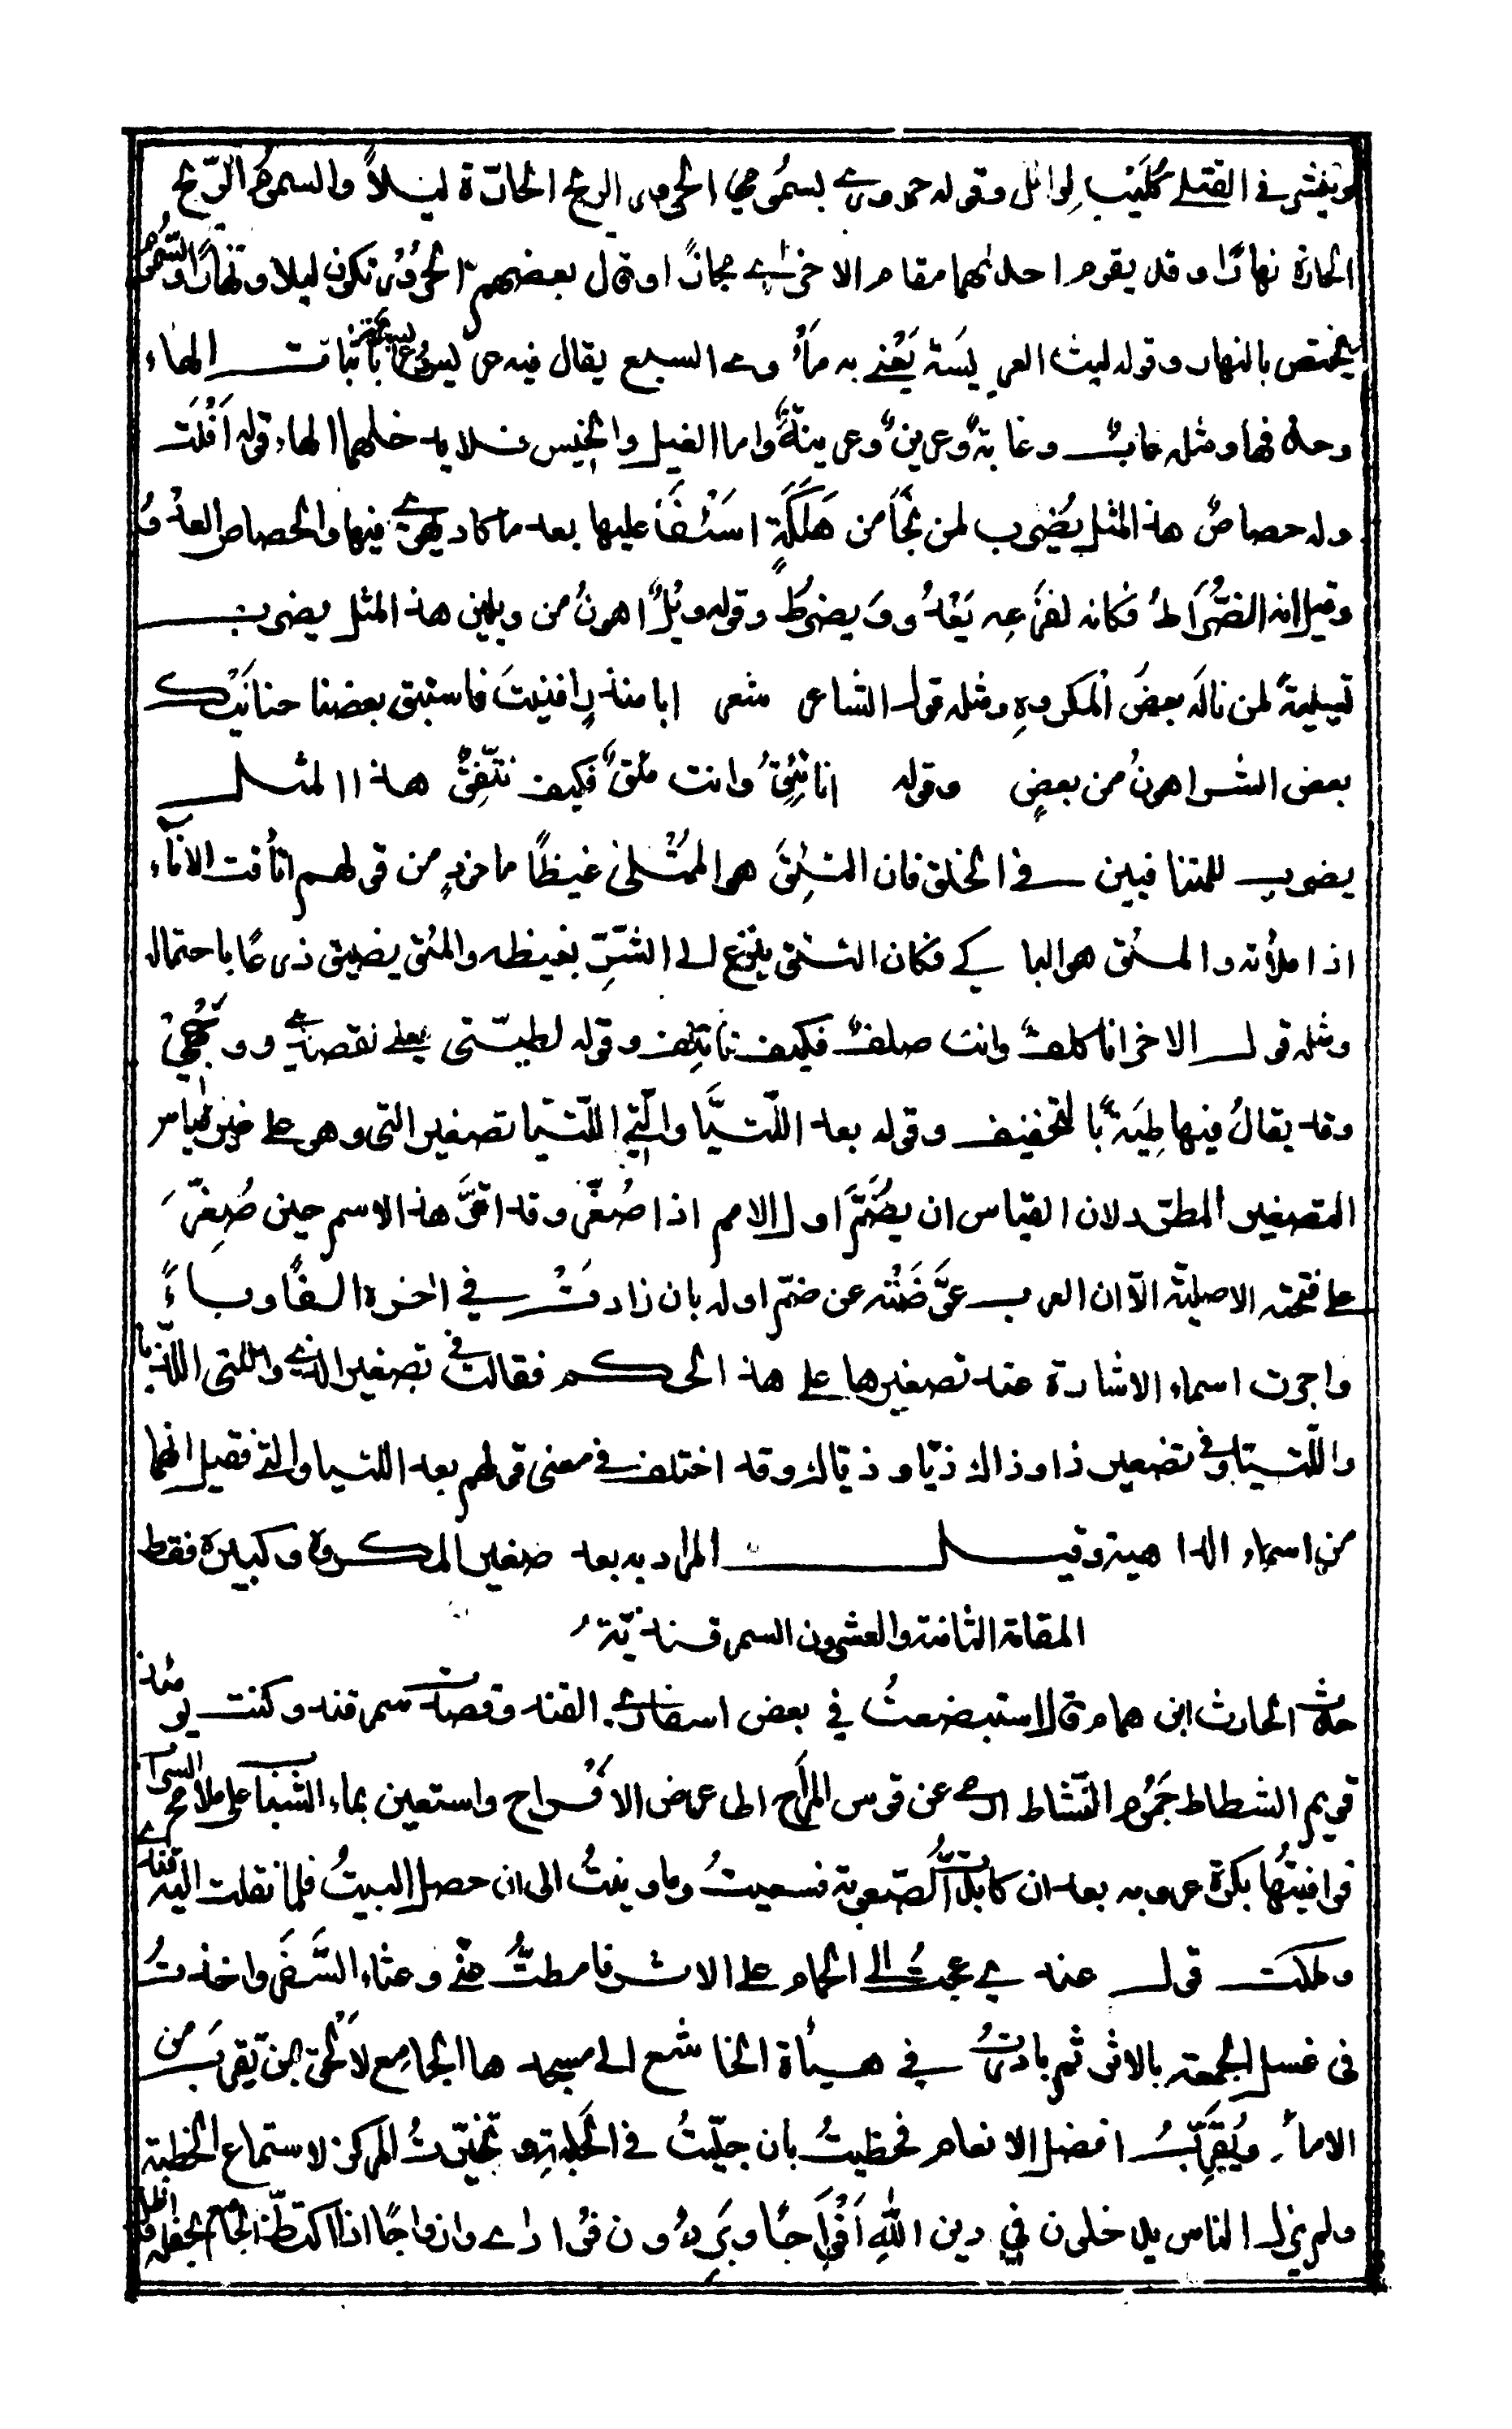 وينشر في القتلى كليب لوائل وقوله حروري بسمومي الحرور الريح الحارّة ليلاً والسموم الرّيح
الحارة نهارًا وقد يقوم احداهما مقام الاخرى مجازًا وقال بعضهم الحرور تكون ليلا ونهارًا والسّموم
يختص بالنهار وقوله ليث العريسة يعني به مأوى السبع يقال فيه عريس وعريسة باثبات الهاء
وحذفها ومثله غاب وغابةٌ وعرين وعرينةٌ واما الغيل والخيس فلا يدخلهما الهاء قوله أفلَت
وله حصاصٌ هذا المثل يُضرب لمن نجَا من هَلَكَةٍ اسْتشفَا عليها بعد ما كاد يهوى فيها والحصاص العدْوُ
وقيل انه الضُّرَاطُ فكانه لفزعه يَعْدُو ويضرطُ وقوله ويْلٌ اهونُ من ويلين هذا المثل يضرب
تسليةً لمن ناله بعضُ المكروهِ ومثله قول الشاعر شعر ابا منذرٍ افنيتَ فاستبق بعضنا حنانيْك
بعض الشر اهونُ من بعضٍ وقوله انا تئِقٌ وانت مئقٌ فكيف نتّفقٌ هذا المثل
يضرب للمتنافيين في الخلق فان التئِقَ هو الممْتلئ غيظًا ماخوذٍ من قولهم اتأقت الاناء
اذا ملأته والمئق هو الباكي فكان التئق ينزع الى الشرِّ بغيظه والمئق يضيق ذرعًا باحتماله
ومثله قول الاخر انا كلفٌ وانت صلفٌ فكيف ناتلف وقوله لطيّتي يعني لقصدي ووجهتي
وقد يقالُ فيها طِيَةً بالتخفيف وقوله بعد اللّتيَّا والّتي اللّتيا تصغير التي وهو على غير قياس
التصغير المطرد لان القياس ان يضمَّ اول الاسم اذا صُغّر وقد اقرَّ هذا الاسم حين صُغِّرَ
على فتحته الاصلية الّا ان العرب عوَّضَتْه عن ضمّ اوله بان زادتْ في اخره الفًا وياءً
واجرت اسماء الاشارة عند تصغيرها على هذا الحكم فقالت في تصغير الذي والتي اللّذيا
واللّتيّا وفي تصغير ذا وذاك ذيّا وذيّاك وقد اختلف في معنى قولهم بعد اللتيا والتي فقيل انهما
من اسماء الداهية وقيل المراد به بعد صغير المكروه وكبيره فقط
المقامة الثامنة والعشرون السمرقنديّة
حدث الحارث ابن همام قال استبضعتُ في بعض اسفاري القند وقصدت سمرقند وكنت يومئذ
قويم الشطاط جَمُوم النّشاط ارمي عن قوس المراح الى غرض الافْراح واستعين بماء الشباب على ملامح السراب
فوافيتُها بكرة عروبه بعد ان كابدتُ الصّعوبة فسعيتُ وما ونيتُ الى ان حصل البيتُ فلما نقلت اليه قندي
وملكت قول عندي عجتُ الى الحمام على الاثر فامطتُّ عني وعثاء السَّفَر واخذتُ
في غسل الجمعة بالاثر ثم بادرتُ في هيأة الخاشع الى مسجدها الجامع لالْحق بمن يقرب من
الامام ويُقَرِّبُ افضل الانعام فحظيتُ بان جلّيتُ في الحَلْبةِ وتخيّرتُ المركز لاستماع الخطبة
ولم يزل الناس يدخلون في دين اللهِ أفْوَاجًا ويَرِدُون فُرادى وازواجًا اذا اكتظّ الجامع بحفله واظلّ